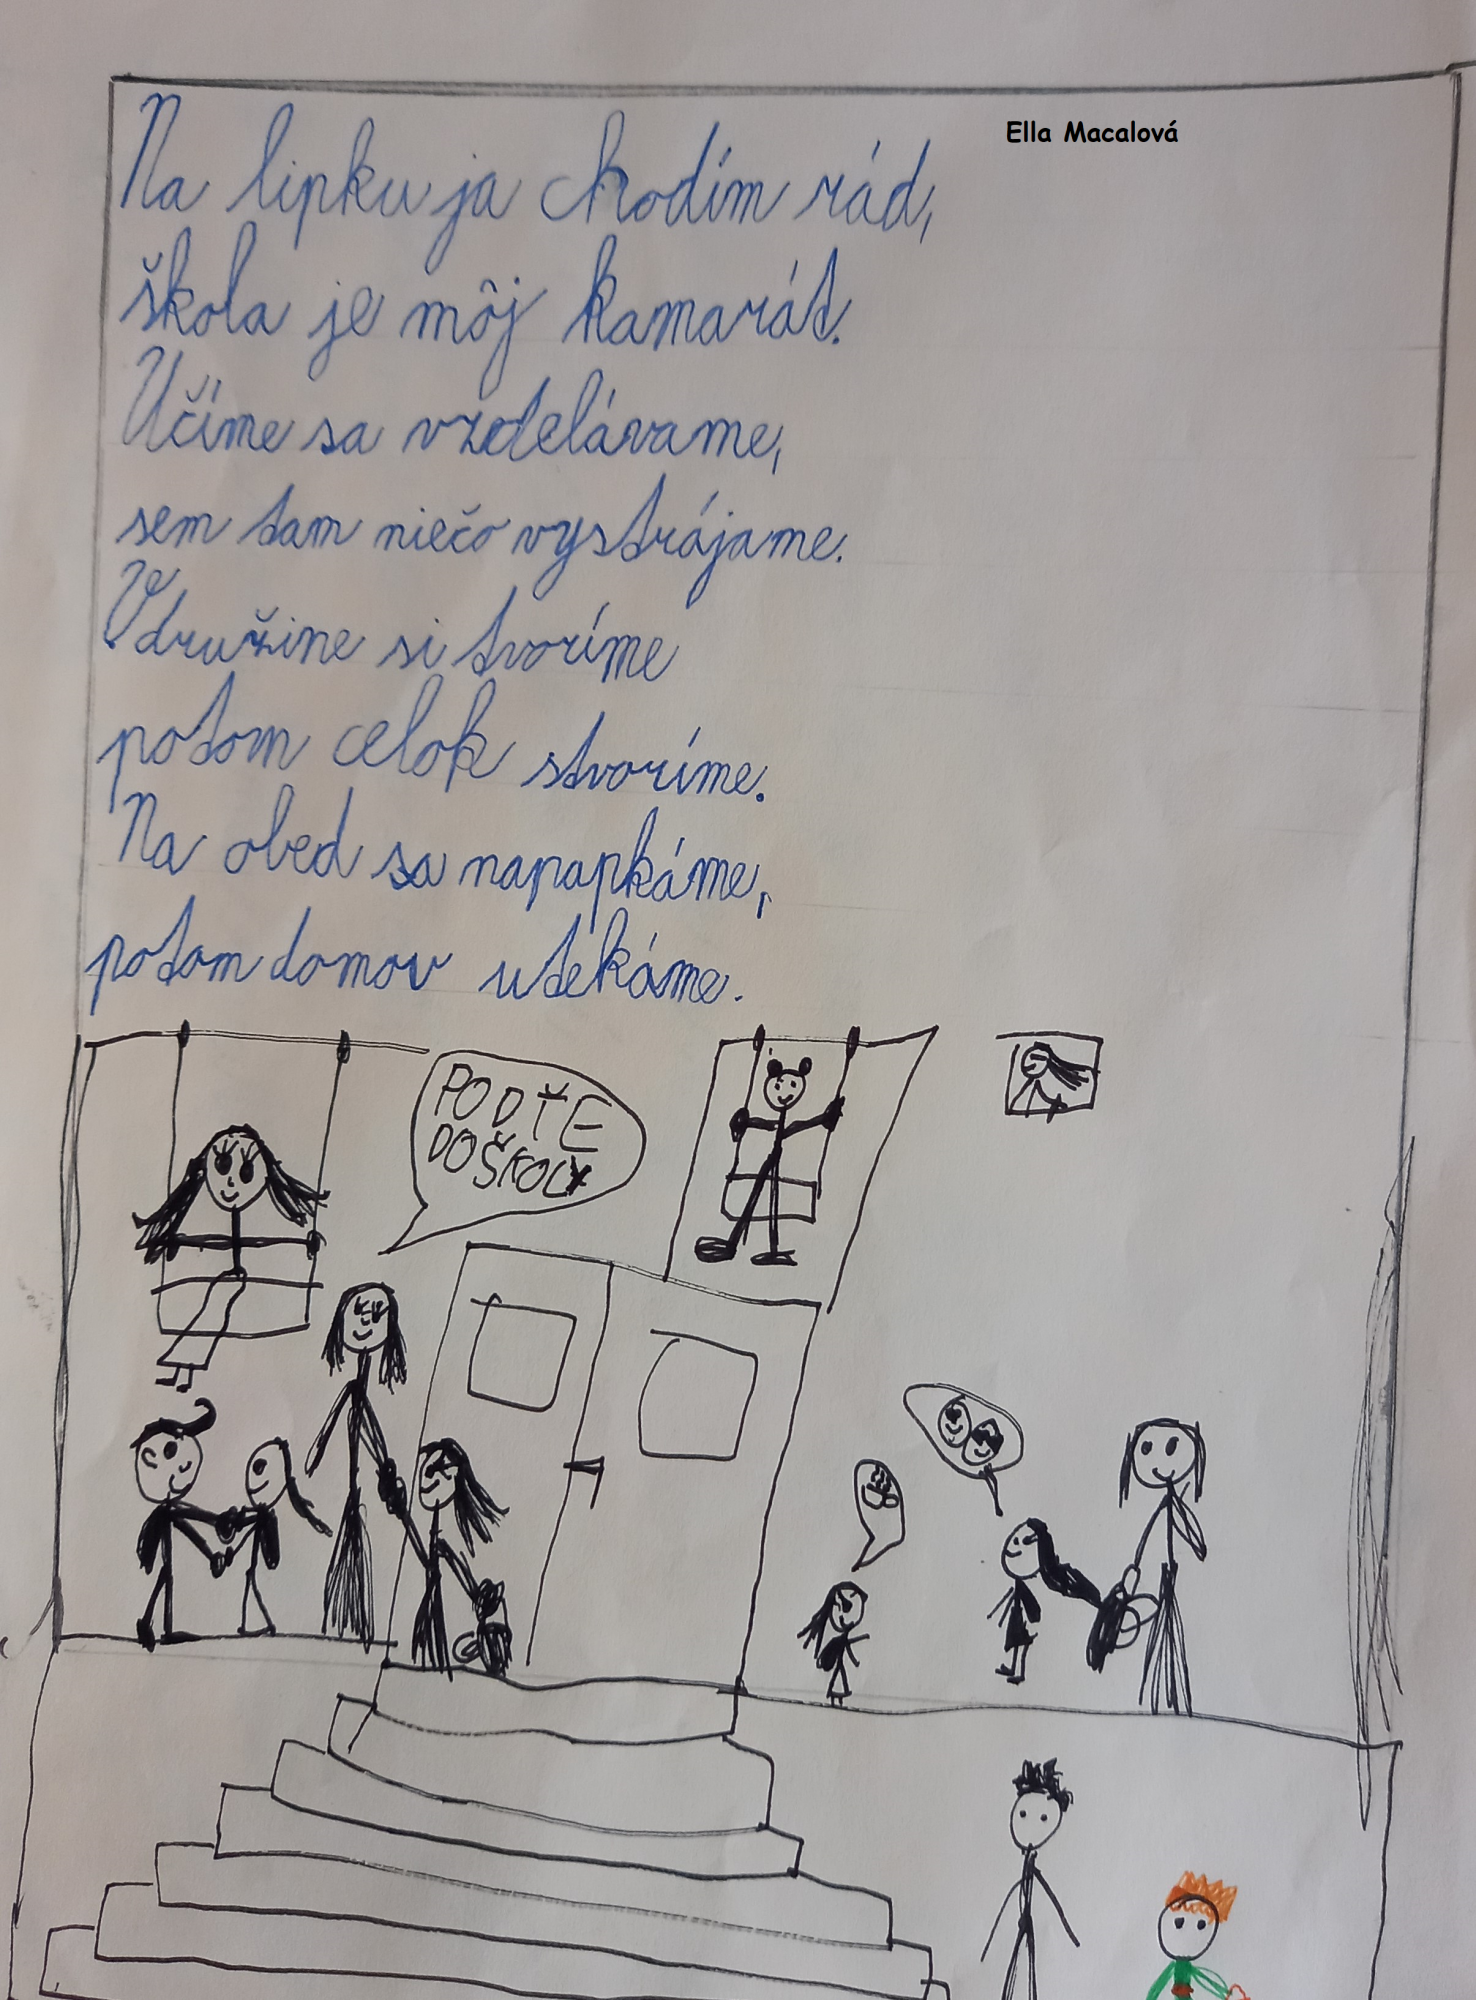 Ella Macalová
Na lipku ja chodím rád,
škola je môj kamarát.
Učíme sa vzdelávame,
sem tam niečo vystrájame.
V družine si tvoríme
potom celok stvoríme.
Na obed sa napapkáme,
potom domov utekáme.
POĎTE
DO ŠKOLY